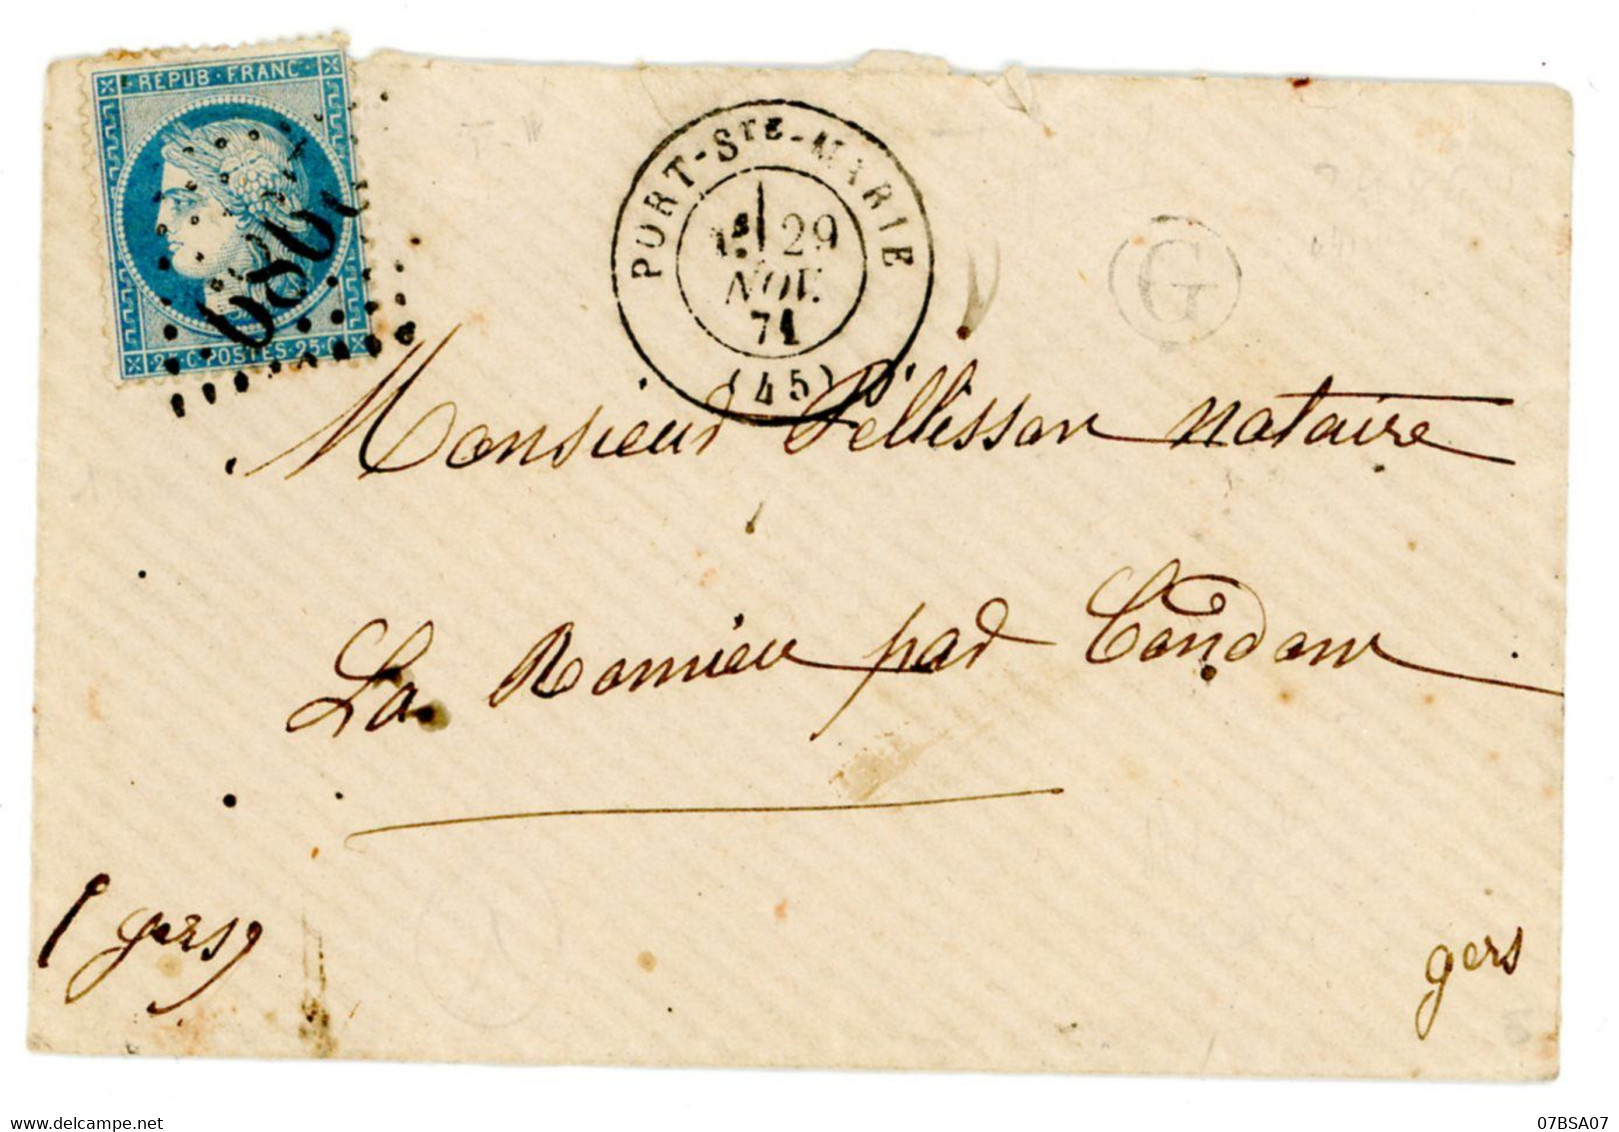 REPUB·FRANC
25·C·POSTES·25·C
PORT-STE-MARIE
29
NOV.
71
(45)
G
Monsieur Pellisson notaire
La Romieu par Condom
(gers)
gers
07BSA07